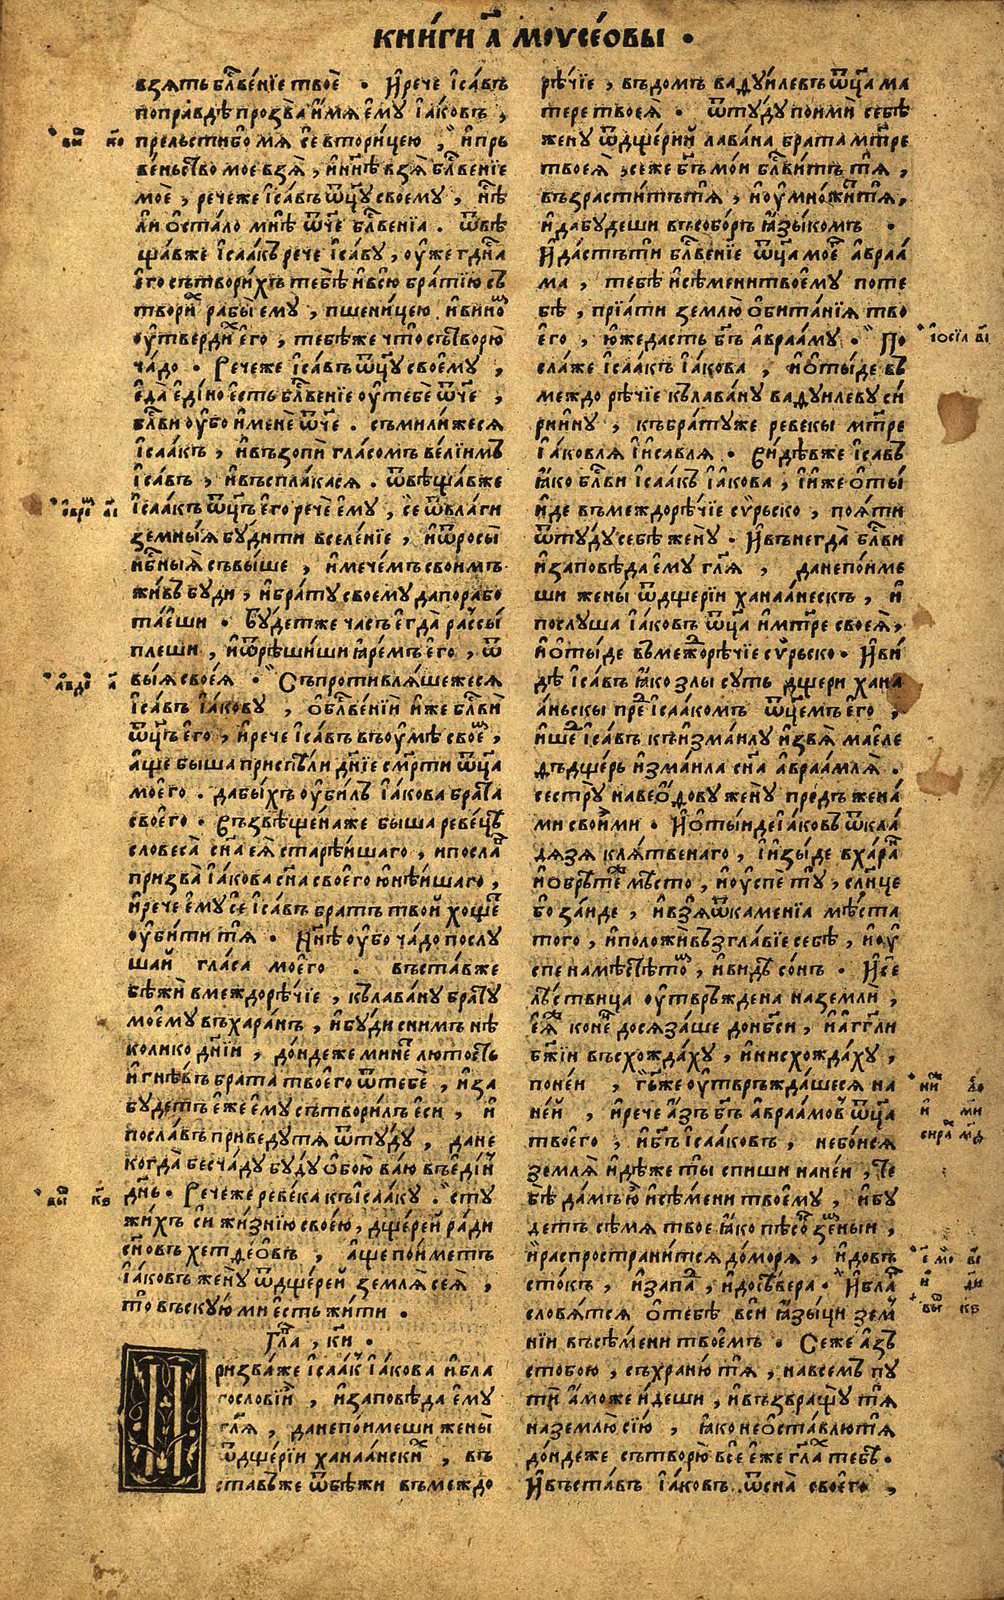 книги а҃ моусеовы ·
взѧть блв҃еніе твое · и рече ісавъ
поправдѣ прозва имѧ ему іаковъ ,
прельстибо мѧ се вторицею , и пръ
веньство мое взѧ , и нн҃ѣ взѧ блв҃еніе
мое , речеже ісавъ ѿц҃у своему , нѣ
ли остало мнѣ ѿч҃е блв҃еніа . ѿвѣ
щавже ісаакъ рече ісаву , оуже гд҃на
его сътворихъ тебѣ и всю братію съ
твори рабы ему , пшеницею и вино
оутверди его , тебѣже что сътворю
чадо · Речеже ісавъ ѿц҃у своему ,
еда едіно есть блв҃еніе оу тебе ѿч҃е ,
блв҃и оубо и мене ѿч҃е . съмилижесѧ
ісаакъ , и възопи гласомъ веліимъ
ісавъ , и въсплакасѧ . ѿвѣщавже
ісаакъ ѿц҃ъ его рече ему , се ѿ влаги
земныѧ будити вселеніе , и ѿ росы
нб҃ныѧ съвыше , и мечемъ своимъ
живъ буди , и брату своему дапорабо
таеши · Будетже часъ егда рассы
плеши , и ѿрѣшиши ꙗремъ его , ѿ
выѧ своеѧ · Съпротивлѧшежесѧ
ісавъ іакову , о блв҃еніи иже блв҃и
ѿц҃ъ его , и рече ісавъ въ оумѣ свое ,
аще быша приспѣли дніе смр҃ти ѿц҃а
моего . дабыхъ оубилъ іакова брата
своего · Възвѣщенаже быша ревецѣ
словеса сн҃а еѧ старѣишаго , и посла
призва іакова сн҃а своего юнѣишаго ,
и рече ему се ісавъ братъ твой хоще
оубити тѧ · Нн҃ѣ оубо чадо послу
шай гласа моего . въставже
бѣжи вмеждорѣчіе , къ лавану брату
моему въ харанъ , и буди сним нѣ
колико дніи , дондеже мине лютость
и гнѣвъ брата твоего ѿ тебѣ , и за
будетъ еже ему сътворилъ еси , и
пославъ приведутѧ ѿтуду , дане
когда бесчаду буду обою ваю въ едіи
дн҃ь · Речеже ревека къ ісааку . сту
жихъ си жизнію своею , дщерей ради
сн҃овъ хетдеовъ , аще пойметъ
іаковъ жену ѿ дщерей землѧ сеѧ ,
то въскую ми есть жити ·
Гла҃ , ки .
Призваже ісаак іакова и бла
гослови , и заповѣда ему
глѧ҃ , данепоимеши жены
ѿ дщеріи ханаански , въ
ставъже ѿбѣжи въ междо
рѣчіе , въ домъ вадуилевъ ѿц҃а ма
тере твоеѧ · ѿтуду поими себѣ
жену ѿ дщерии лавана брата мт҃ре
твоеѧ , сеже бг҃ъ мои блв҃итъ тѧ ,
възраститътѧ , и оумножитътѧ ,
и дабудеши въ соборъ ꙗзыкомъ .
И дастъти блв҃еніе ѿц҃а мое авраа
ма , тебѣ и сѣмени твоему поте
бѣ , пріати землю обитаніѧ тво
его , юже дасть бг҃ъ аврааму · По
слаже ісаакъ іакова , и отыде въ
междорѣчіе къ лавану вадуилеву си
рину , къ братуже ревекы мт҃ре
іаковлѧ і исавлѧ · Видѣвже ісавъ
ꙗко блв҃и ісаакъ іакова , і иже оты
иде въ междорѣчіе сѵрьско , поѧти
ѿтуду себѣ жену · И вънегда блв҃и
и заповѣда ему глѧ҃ , данепоиме
ши жены ѿ дщеріи ханаанескъ , и
послуша іаковъ ѿц҃а и мт҃ре своеѧ ,
и отыде въ межорѣчіе сѵрьско · И ви
дѣ ісавъ ꙗко злы суть дщери хана
аньскы пре ісаакомъ ѿц҃емъ его ,
и ше ісавъ къ измаилу и взѧ маеле
дъ дщерь измаила сн҃а авраамлѧ .
сестру навеодову жену предъ жена
ми своими · И отыиде іаковъ ѿ кла
дѧзѧ клѧтвенаго , і изыде в хара
и обрѣте мѣсто , и оуспе ту , слн҃це
бо заиде , и взѧ ѿ каменіа мѣста
того , и положи въ зглавіе себѣ , и оу
спе на мѣстѣ то , и видѣ сонъ · И се
лѣствица оутвръждена на земли ,
еѧ коне досѧзаше до нб҃си , и агг҃ли
бж҃іи въсхождаху , и нисхождаху ,
поней , гь҃же оутвръждашесѧ на
ней , и рече азъ бг҃ъ авраамовъ ѿц҃а
твоего , и бг҃ъ ісааковъ , небоисѧ
землѧ идѣже ты спиши на ней , те
бѣ дамъ ю и сѣмени твоему , и бу
детъ сѣмѧ твое ꙗко пѣсо земныи ,
и распространитсѧ доморѧ , и довъ
стокъ , и запа , и до сѣвера · И бла
словѧтсѧ о тебѣ вси ꙗзыци зем
нии въ сѣмени твоемъ · Сеже азъ
с тобою , съхранютѧ , на всемъ пу
ти аможе идеши , и възвращу тѧ
на землю сію , ꙗко не оставлютѧ
дондеже сътворю все еже гла҃ тебѣ ·
И въставъ іаковъ ѿ сна своего ,